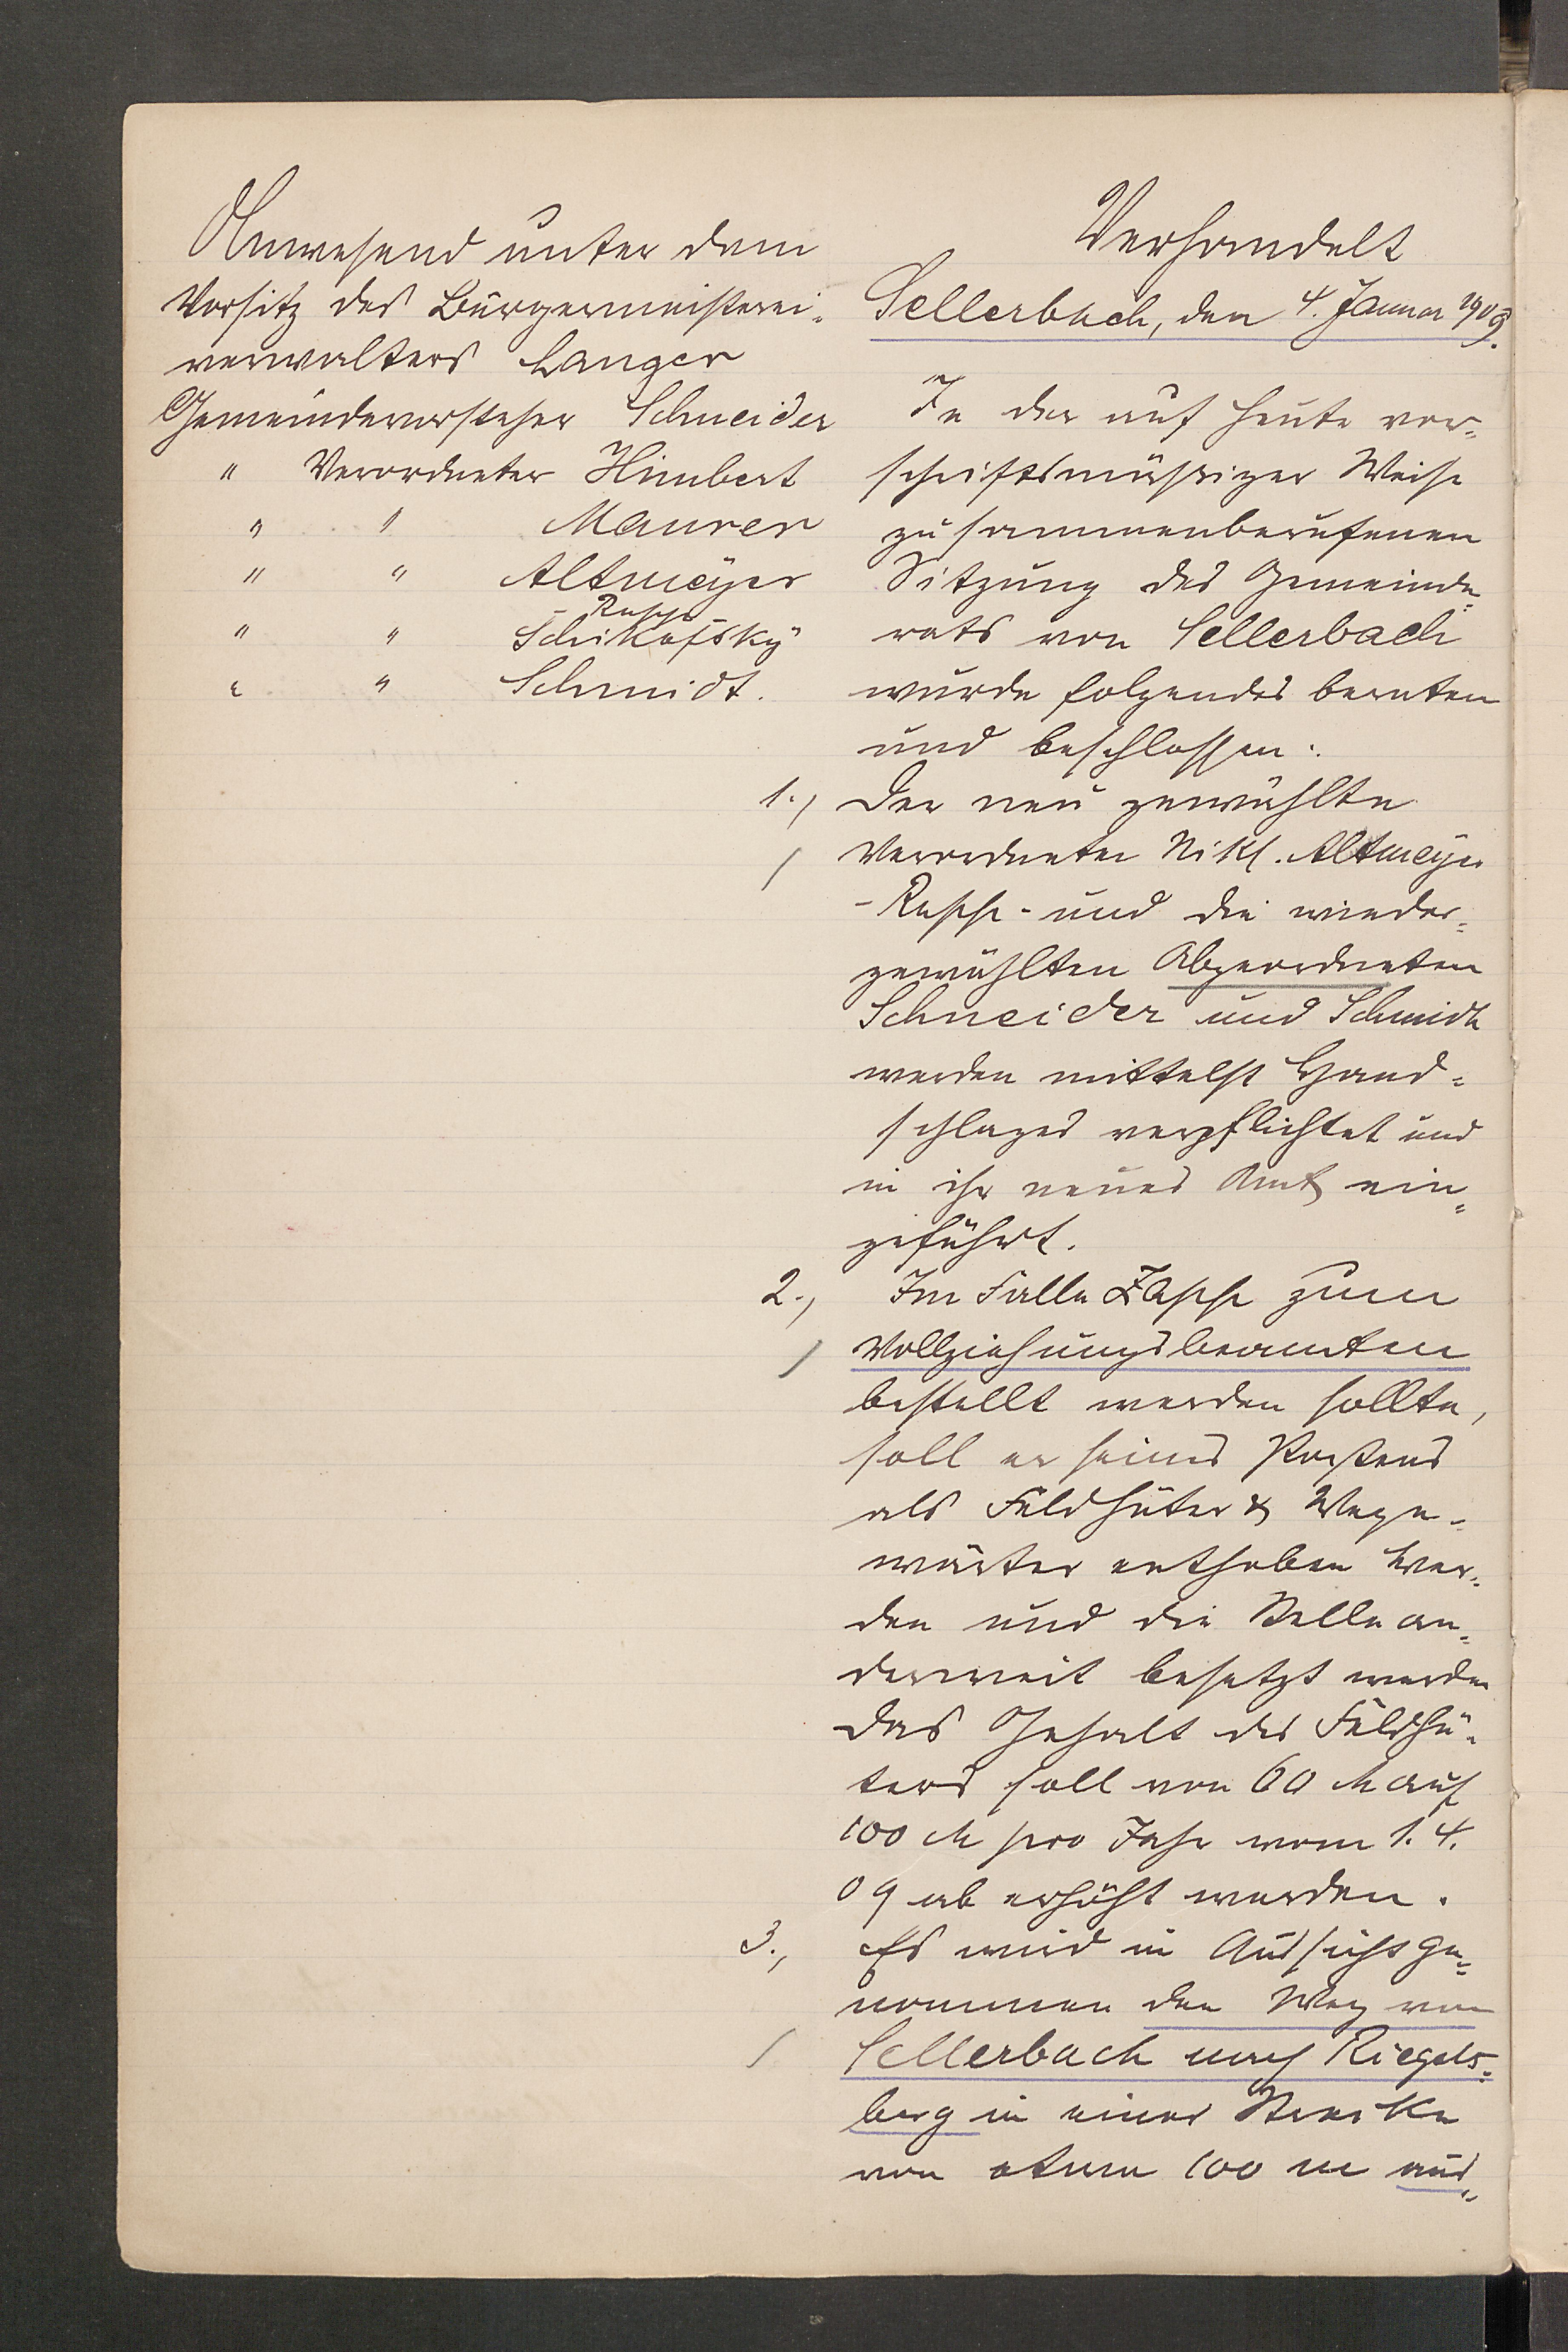 Anwesend unter dem
Vorsitz des Bürgermeisterei-
verwalters Langer
Gemeindevorsteher Schneider
" Verordneter Himbert
" " Maurer
" " Altmeyer
- Rupp -
" " Schikofsky
" " Schmidt.
Verhandelt
Sellerbach, den 4. Januar 1909.
In der auf heute vor-
schriftsmäßiger Weise
zusammenberufenen
Sitzung des Gemeinde-
rats von Sellerbach
wurde folgendes beraten
und beschlossen:
1., Der neu gewählte
Verordneter Nikl. Altmeyer
-Rupp- und die wieder-
gewählten Abgeordneten
Schneider und Schmidt
werden mittelst Hand-
schlages verpflichtet und
in ihr neues Amt ein-
geführt.
2., Im Falle Zapp zum
Vollziehungsbeamten
bestellt werden sollte,
soll er seines Postens
als Feldhüter & Wege-
wärter enthoben wer-
den und die Stelle an-
derweit besetzt werden
Das Gehalt des Feldhü-
ters soll von 60 M auf
100 M pro Jahr vom 1. 4.
09 ab erhöht werden.
3., Es wird in Aussicht ge-
nommen den Weg von
Sellerbach nach Riegels-
berg in einer Strecke
von etwa 100 m aus-